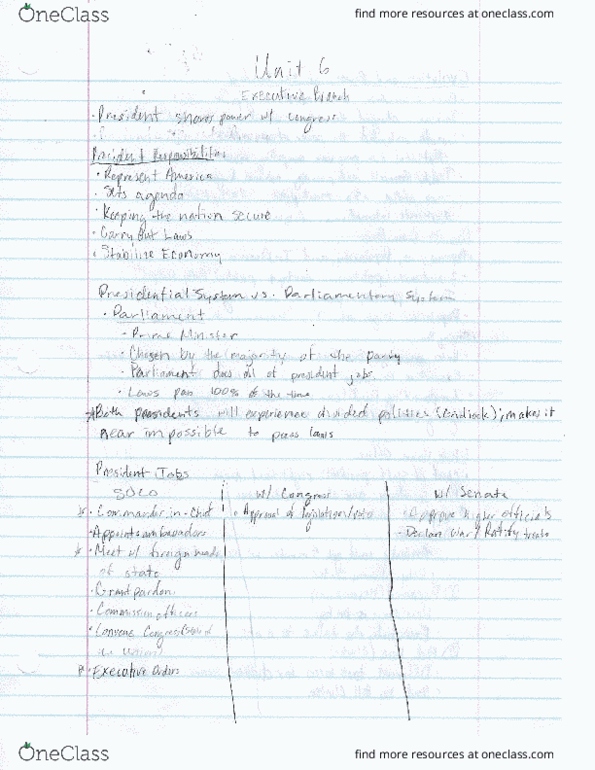 OneClass
find more resources at oneclass.com
Unit 6
Executive Branch
• President shares power w/ Congress
President Responsibilities
• Represent America
• Sets agenda
• Keeping the nation secure
• Carry Out Laws
• Stabilize Economy
Presidential System vs. Parliamentary System
• Parliament
• Prime Minister
• Chosen by the majority of the party
• Parliament does all of president jobs
• Laws pass 100% of the time
Both presidents will experience divided politics (Gridlock); makes it
near impossible to pass laws
President Jobs
SOLO w/ Congress w/ Senate
• Commander in Chief • Approval of legislation/veto • Approve higher officials
• Appoint ambassadors • Declare War / Ratify treaty
• Meet w/ foreign heads
of state
• Grant pardon
• Commission officers
• Convene Congress
Union
• Executive Orders
OneClass
find more resources at oneclass.com